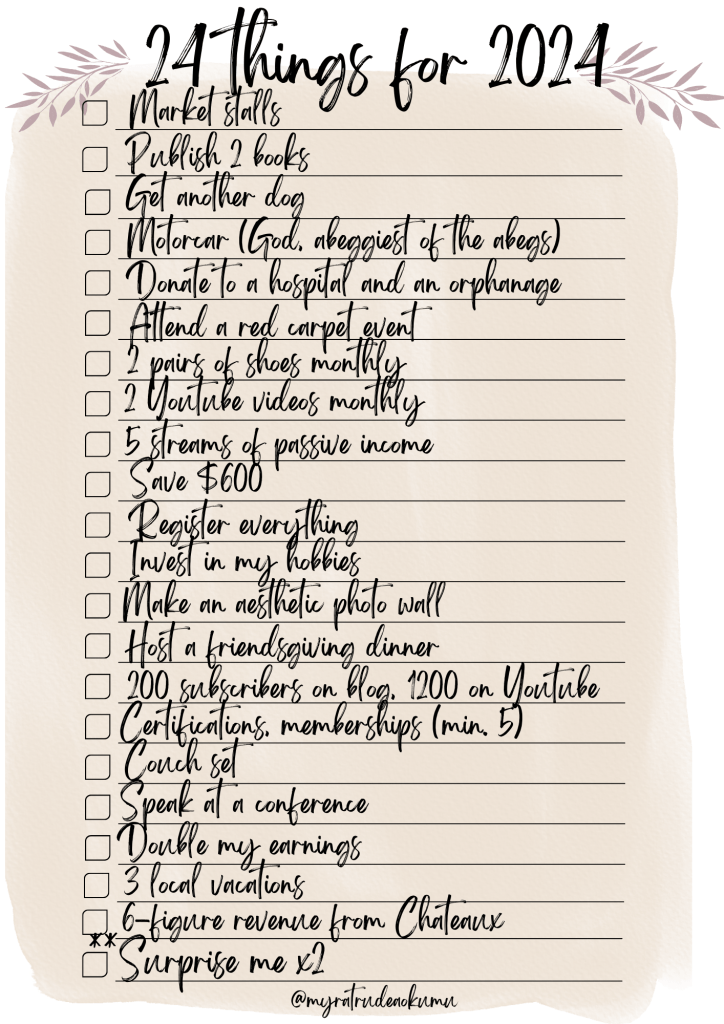 24 things for 2024
Market stalls
Publish 2 books
Get another dog
Motorcar (God, abeggiest of the abegs)
Donate to a hospital and an orphanage
Attend a red carpet event
2 pairs of shoes monthly
2 Youtube videos monthly
5 streams of passive income
Save $600
Register everything
Invest in my hobbies
Make an aesthetic photo wall
Host a friendsgiving dinner
200 subscribers on blog, 1200 on Youtube
Certifications, memberships (min. 5)
Couch set
Speak at a conference
Double my earnings
3 local vacations
6-figure revenue from Chateaux
**
Surprise me x2
@myratrudeaokumu